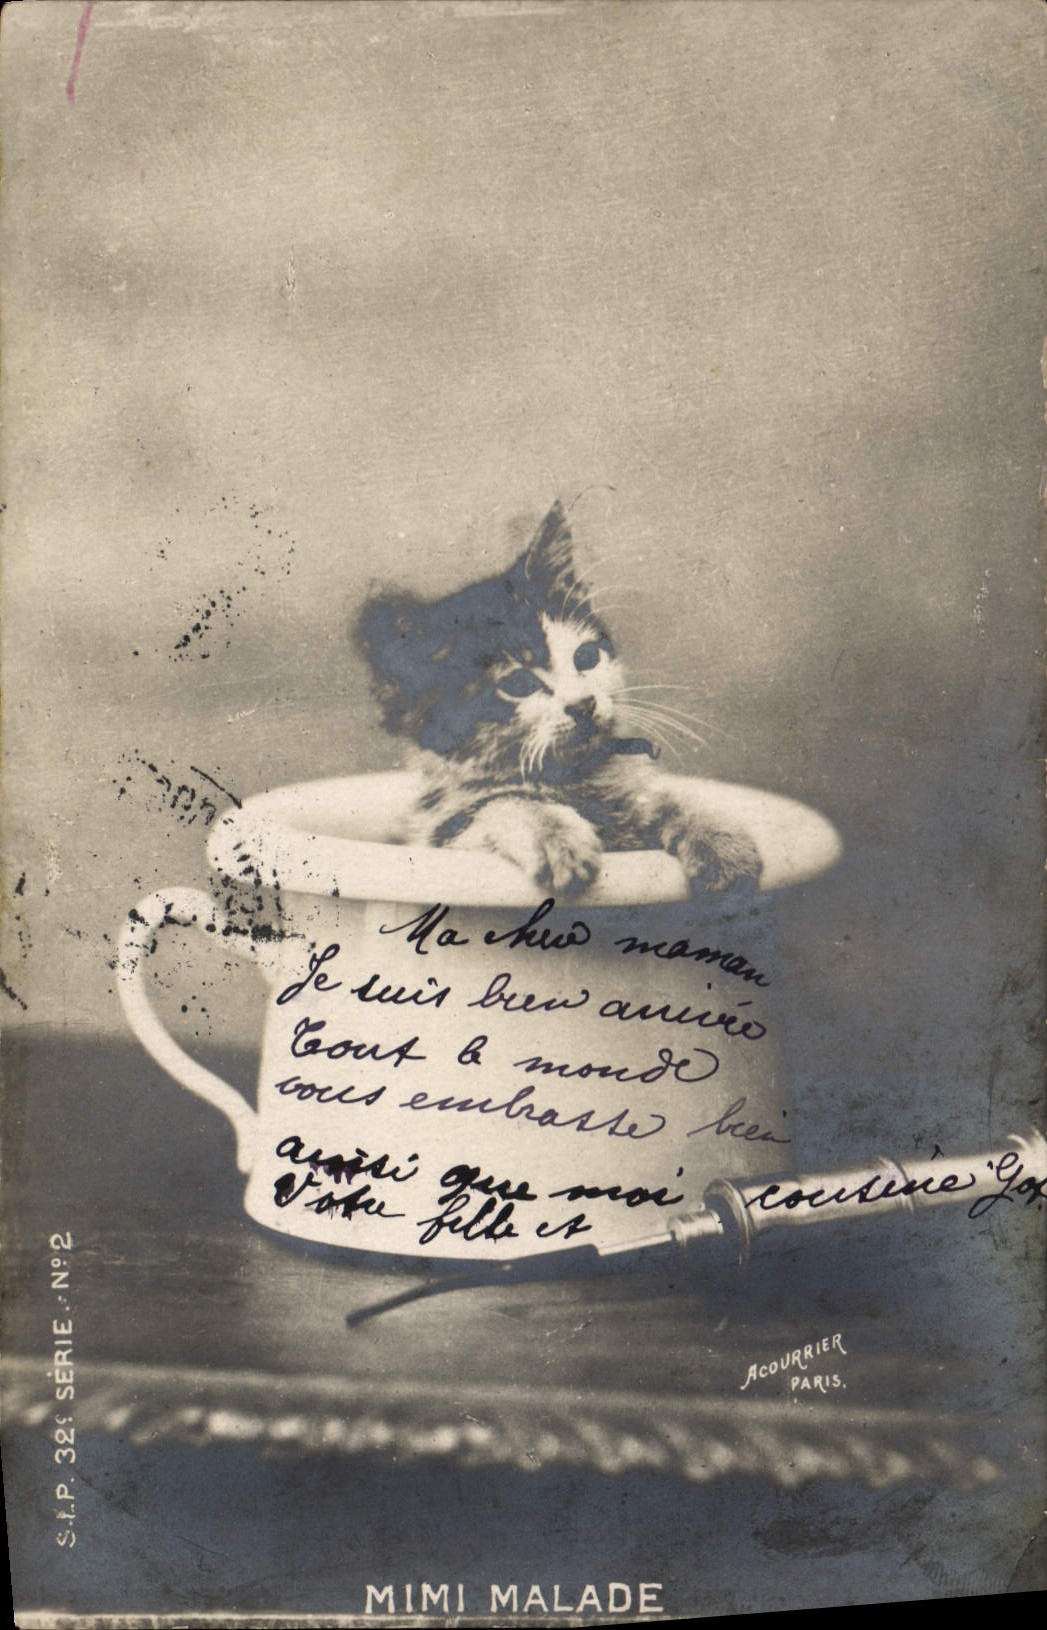 Ma chère maman
Je suis bien arrivée
Tout le monde
vous embrasse bien
ainsi que moi
Votre fille et cousine
S.I.P. 32e SÉRIE. Nº 2
A COURRIER
PARIS.
MIMI MALADE